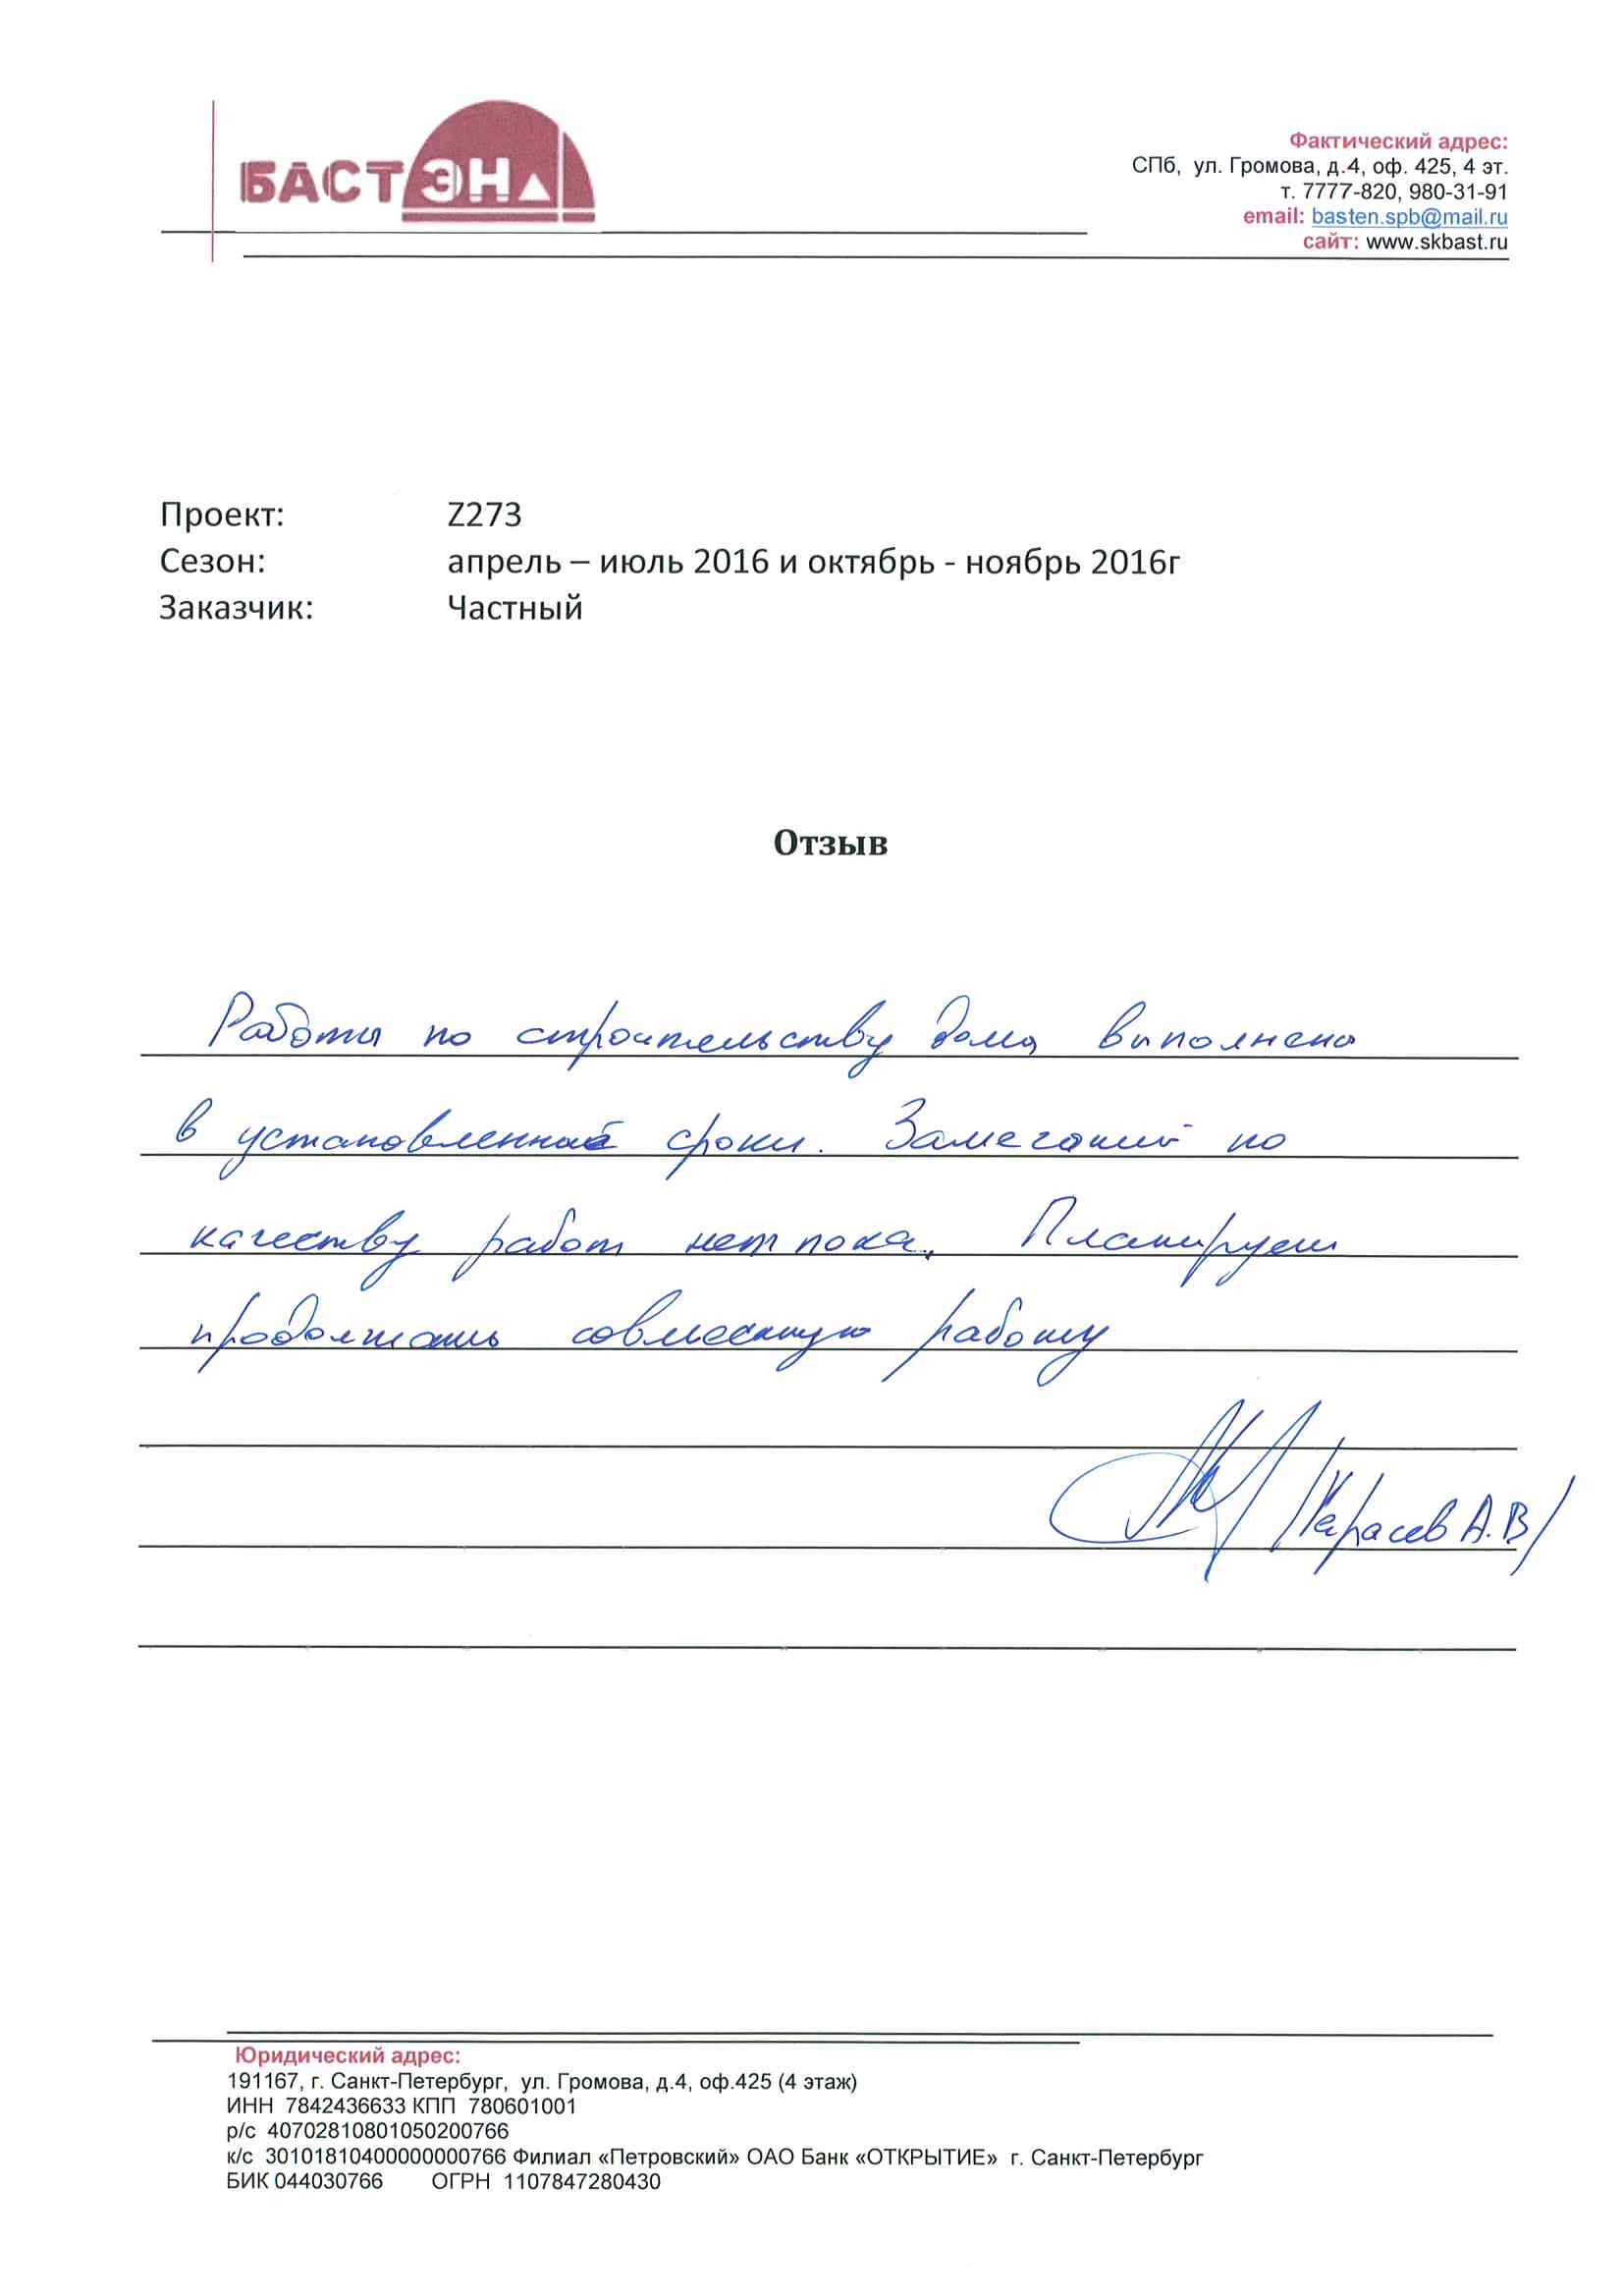 БАСТЭН
Фактический адрес:
СПб, ул. Громова, д.4, оф. 425, 4 эт.
т. 7777-820, 980-31-91
email: basten.spb@mail.ru
сайт: www.skbast.ru
Проект: Z273
Сезон: апрель – июль 2016 и октябрь - ноябрь 2016г
Заказчик: Частный
Отзыв
Работы по строительству дома выполнены
в установленные сроки. Замечаний по
качеству работ нет пока. Планируем
продолжать совместную работу
/Карасев А.В/
Юридический адрес:
191167, г. Санкт-Петербург, ул. Громова, д.4, оф.425 (4 этаж)
ИНН 7842436633 КПП 780601001
р/с 40702810801050200766
к/с 30101810400000000766 Филиал «Петровский» ОАО Банк «ОТКРЫТИЕ» г. Санкт-Петербург
БИК 044030766 ОГРН 1107847280430